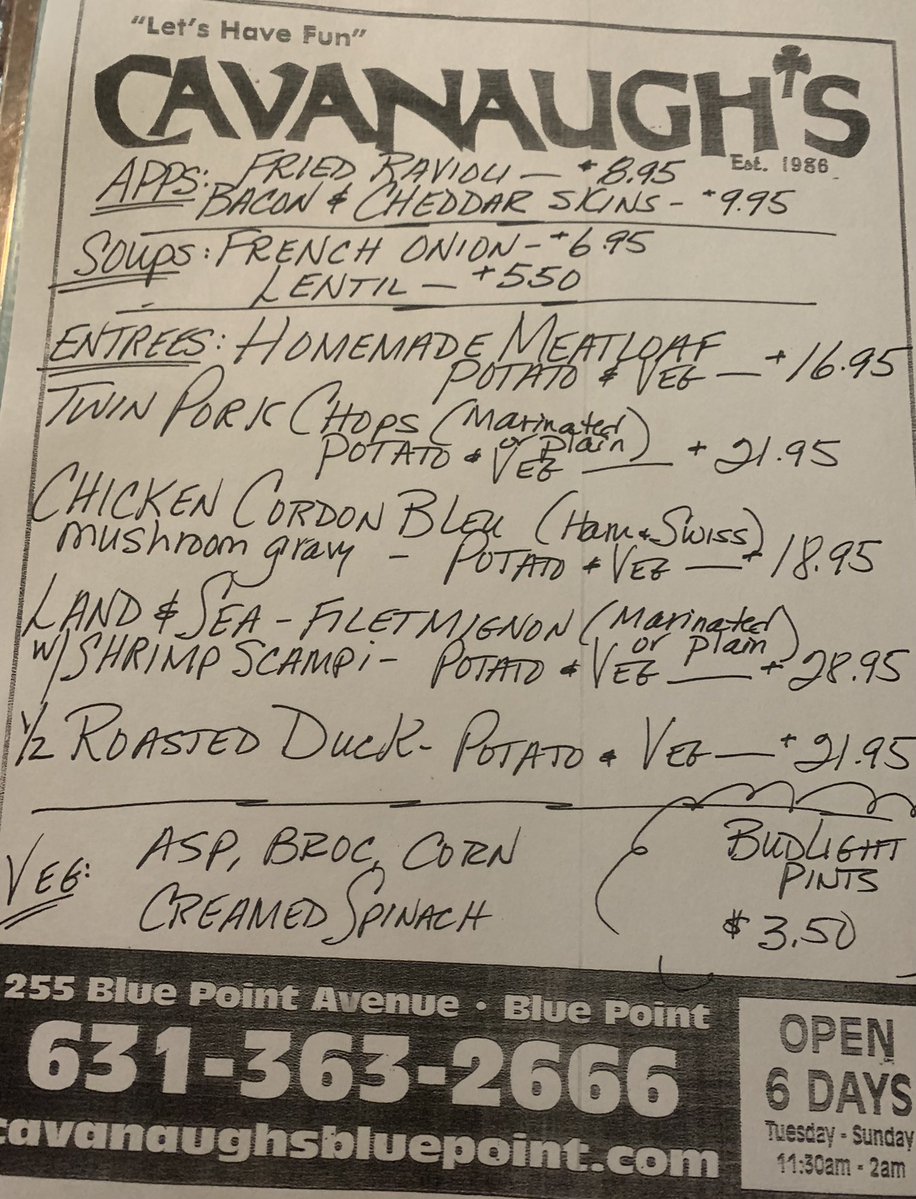 "Let's Have Fun"
CAVANAUGH'S
Est. 1986
APPS: FRIED RAVIOLI — $8.95
BACON & CHEDDAR SKINS - $9.95
SOUPS: FRENCH ONION - $6.95
LENTIL — $5.50
ENTREES: HOMEMADE MEATLOAF
POTATO & VEG — $16.95
TWIN PORK CHOPS (Marinated or Plain)
POTATO & VEG — $21.95
CHICKEN CORDON BLEU (Ham & Swiss)
mushroom gravy - POTATO & VEG — $18.95
LAND & SEA - FILET MIGNON (Marinated or Plain)
w/ SHRIMP SCAMPI - POTATO & VEG — $28.95
1/2 ROASTED DUCK - POTATO & VEG — $21.95
VEG: ASP, BROC, CORN
CREAMED SPINACH
BUDLIGHT
PINTS
$3.50
255 Blue Point Avenue • Blue Point
631-363-2666
cavanaughsbluepoint.com
OPEN
6 DAYS
Tuesday - Sunday
11:30am - 2am